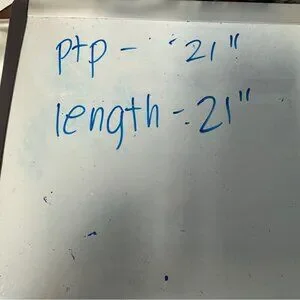 ptp - 21"
length - 21"